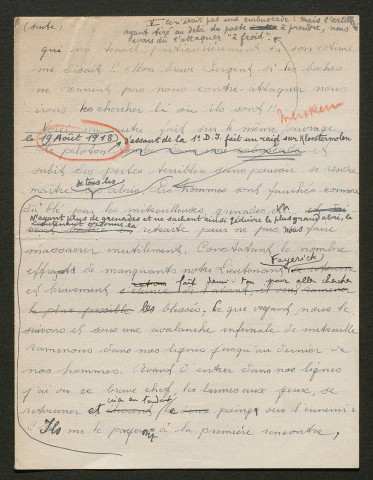 (suite)
1- Ce n'était pas une embuscade: mais l'artillerie
ayant tiré au delà du poste à prendre, nous
avons dû l'attaquer "à froid".
qui me tenait particulièrement en son estime
me disait!! Mon brave Sergent si les boches
ne viennent pas nous contre attaquer nous
irons les chercher là où ils sont!!
Merckem
Voici un autre fait sur le même ouvrage
le 19 Août 1918 d'assaut de la 1e D.I. fait au raid sur Kloostermolen
le peloton
subit des pertes terribles sans pouvoir se rendre
maître de tous les abris. Les hommes sont fauchés comme
du blé par les mitrailleuses, grenades
N'ayant plus de grenades et ne sachant ainsi réduire le plus grand abri, le
lieutenant ordonne la
retraite pour ne pas nous faire
massacrer inutilement. Constatant le nombre
effrayant de manquants notre Lieutenant Fayerick
et bravement fait demi-tour pour aller chercher
le plus possible les blessés. Ce que voyant nous le
suivons et sous une avalanche infernale de mitraille
ramenons dans nos lignes jusqu'au dernier de
nos hommes. Avant d'entrer dans nos lignes
j'ai vu ce brave chef, les larmes aux yeux, se
retourner et crier en tendant le poing vers l'ennemi:
!! Ils me le payeront à la première rencontre,